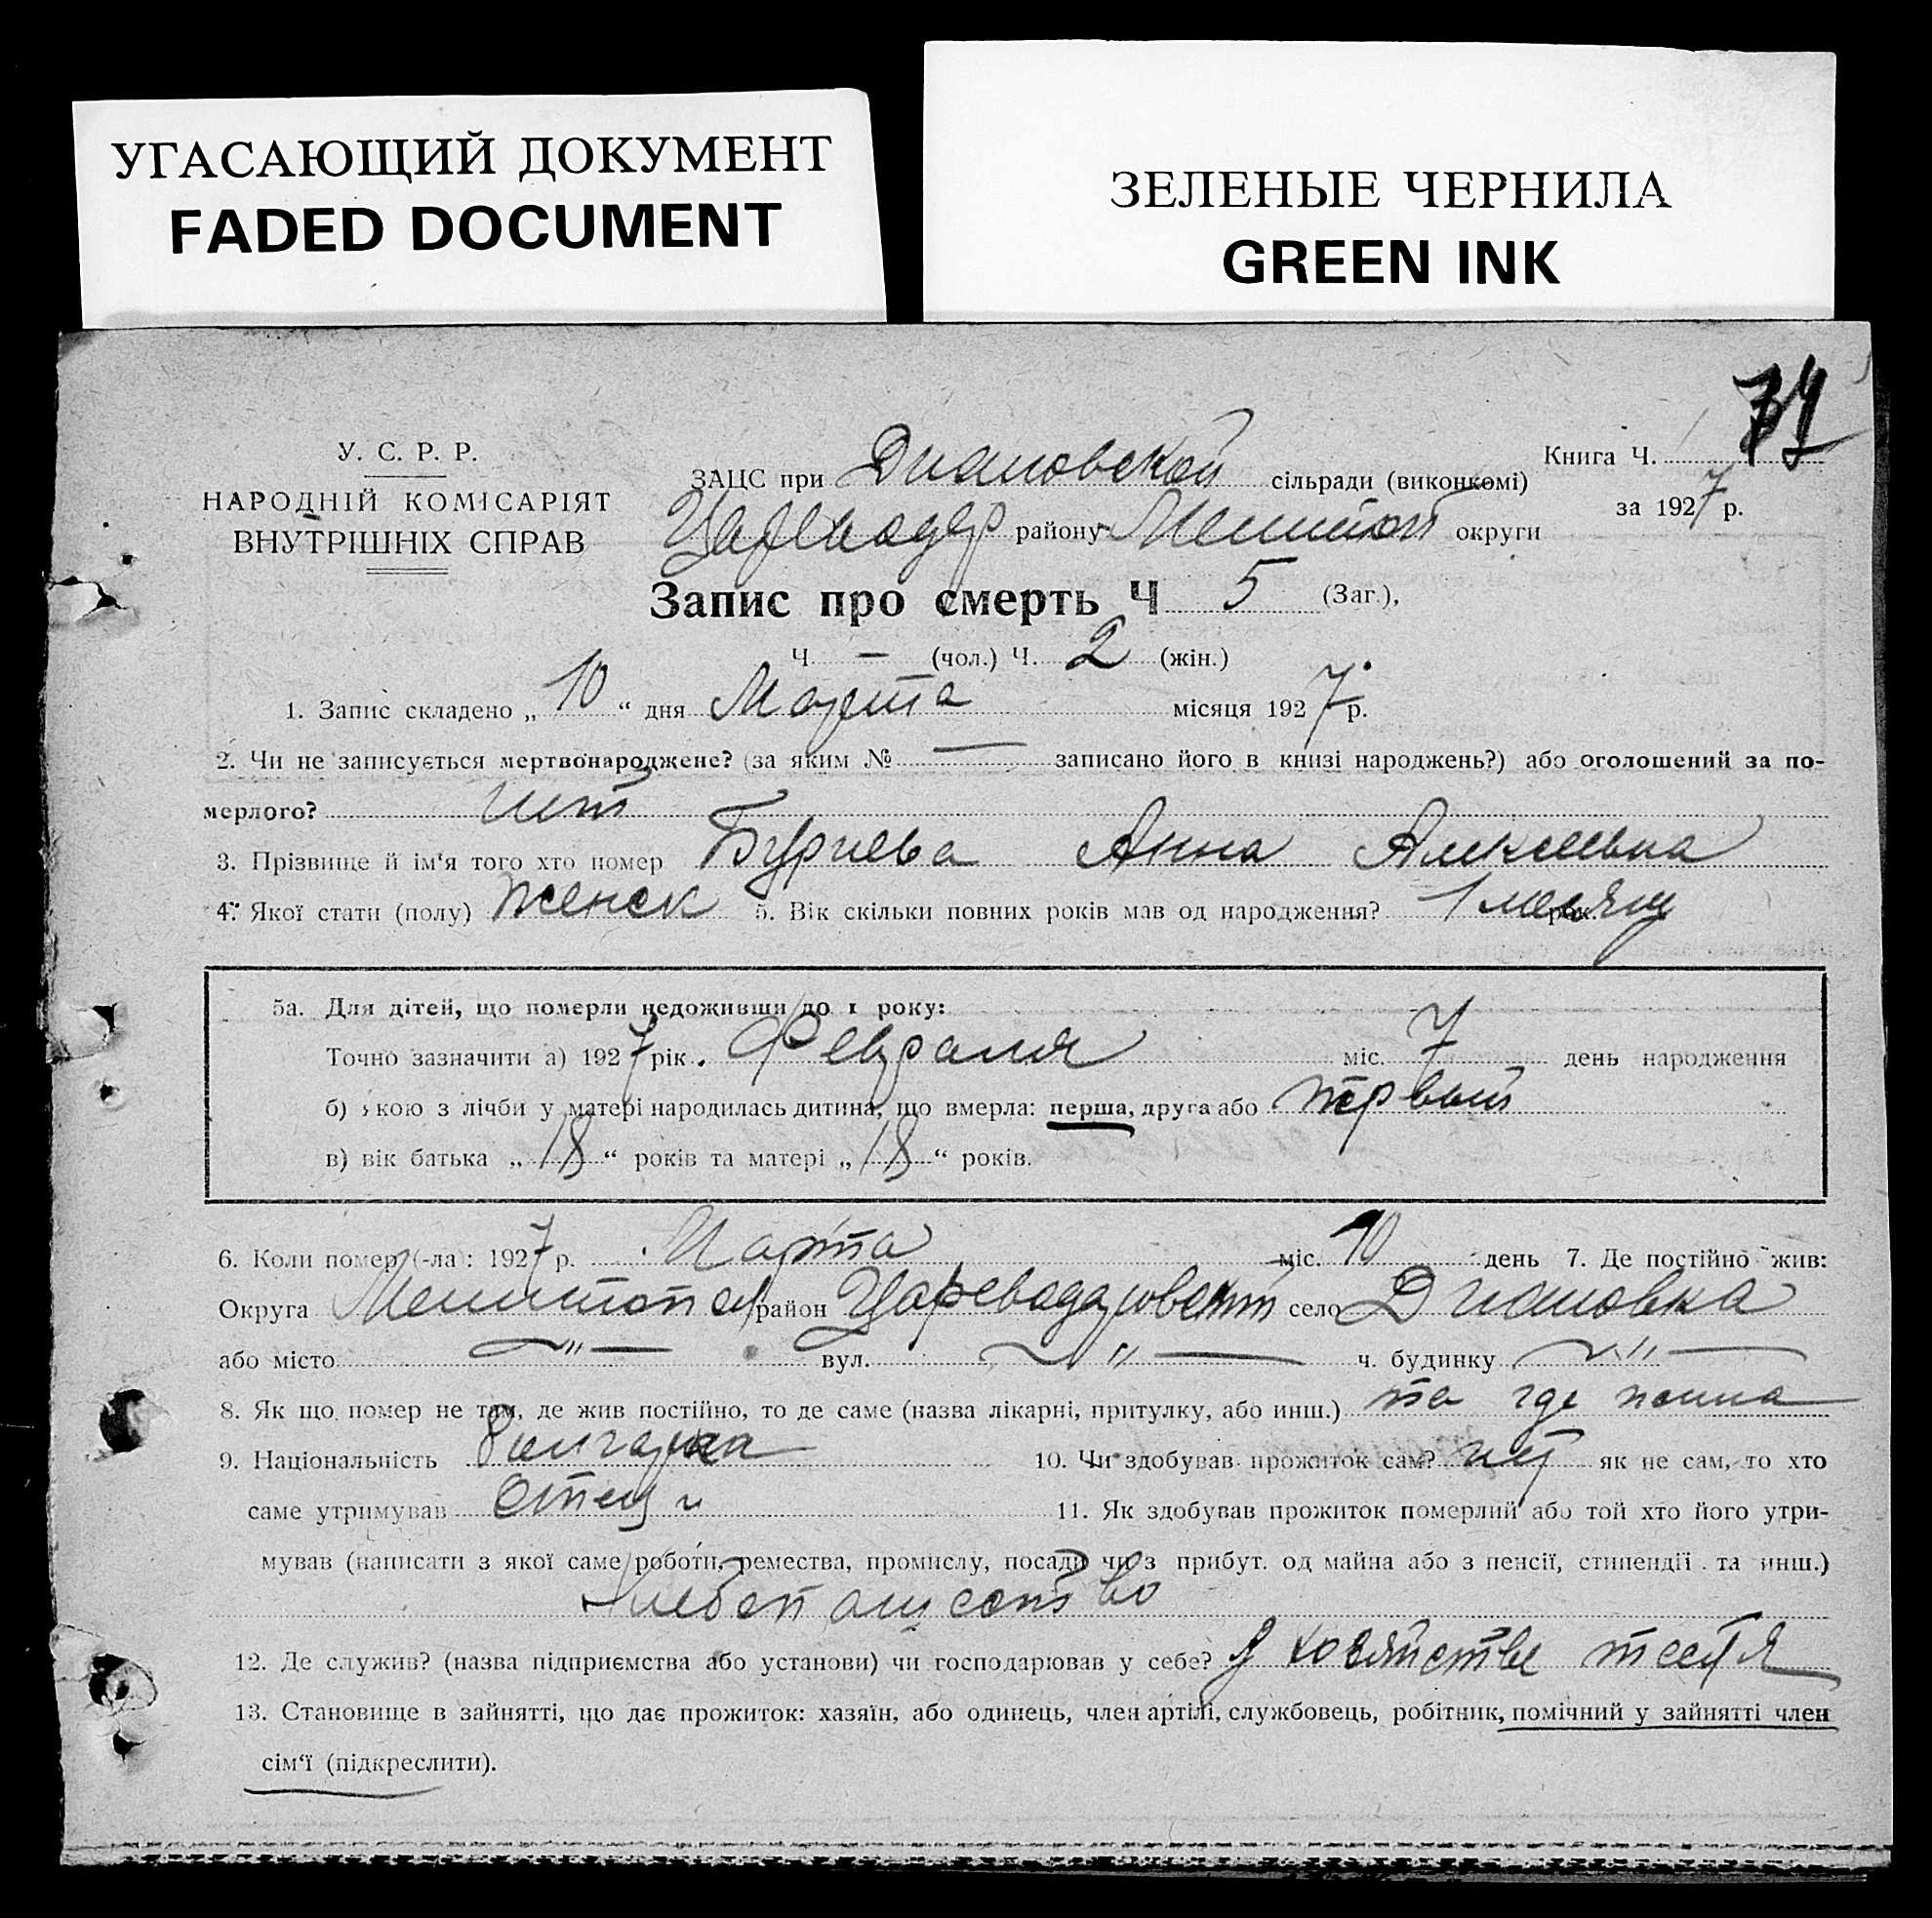 УГАСАЮЩИЙ ДОКУМЕНТ
FADED DOCUMENT
ЗЕЛЕНЫЕ ЧЕРНИЛА
GREEN INK
У. С. Р. Р.
НАРОДНІЙ КОМІСАРІЯТ
ВНУТРІШНІХ СПРАВ
ЗАЦС при Диановской сільради (виконкомі)
району округи
Книга Ч.
за 1927 р.
Запис про смерть Ч 5 (Заг.),
Ч. — (чол.) Ч. 2 (жін.)
1. Запис складено „ 10 “ дня Марта місяця 1927 р.
2. Чи не записується мертвонароджене? (за яким № — записано його в книзі народжень?) або оголошений за по-
мерлого? нет
3. Прізвище й ім'я того хто помер Бургиева Анна Алексеевна
4. Якої стати (полу) женск 5. Вік скільки повних років мав од народження? 1 месяц рок
5а. Для дітей, що померли недоживши до 1 року:
Точно зазначити а) 1927 рік. Февраля міс. 7 день народження
б) якою з лічби у матері народилась дитина, що вмерла: перша, друга або первый
в) вік батька „ 18 “ років та матері „ 18 “ років.
6. Коли помер (-ла): 1927 р. Марта міс. 10 день 7. Де постійно жив:
Округа район село Диановка
або місто —〃— вул. —〃— ч. будинку —〃—
8. Як що помер не там, де жив постійно, то де саме (назва лікарні, притулку, або инш.) та где
9. Національність Болгарка 10. Чи здобував прожиток сам? нет як не сам, то хто
саме утримував Отец 11. Як здобував прожиток померлий або той хто його утри-
мував (написати з якої саме роботи, ремества, промислу, посади чи з прибут. од майна або з пенсії, стипендії та инш.)
Хлебопашество
12. Де служив? (назва підприємства або установи) чи господарював у себе? У хозяйстве тестя
13. Становище в зайнятті, що дає прожиток: хазяїн, або одинець, член артілі, службовець, робітник, помічний у зайнятті член
сім'ї (підкреслити).